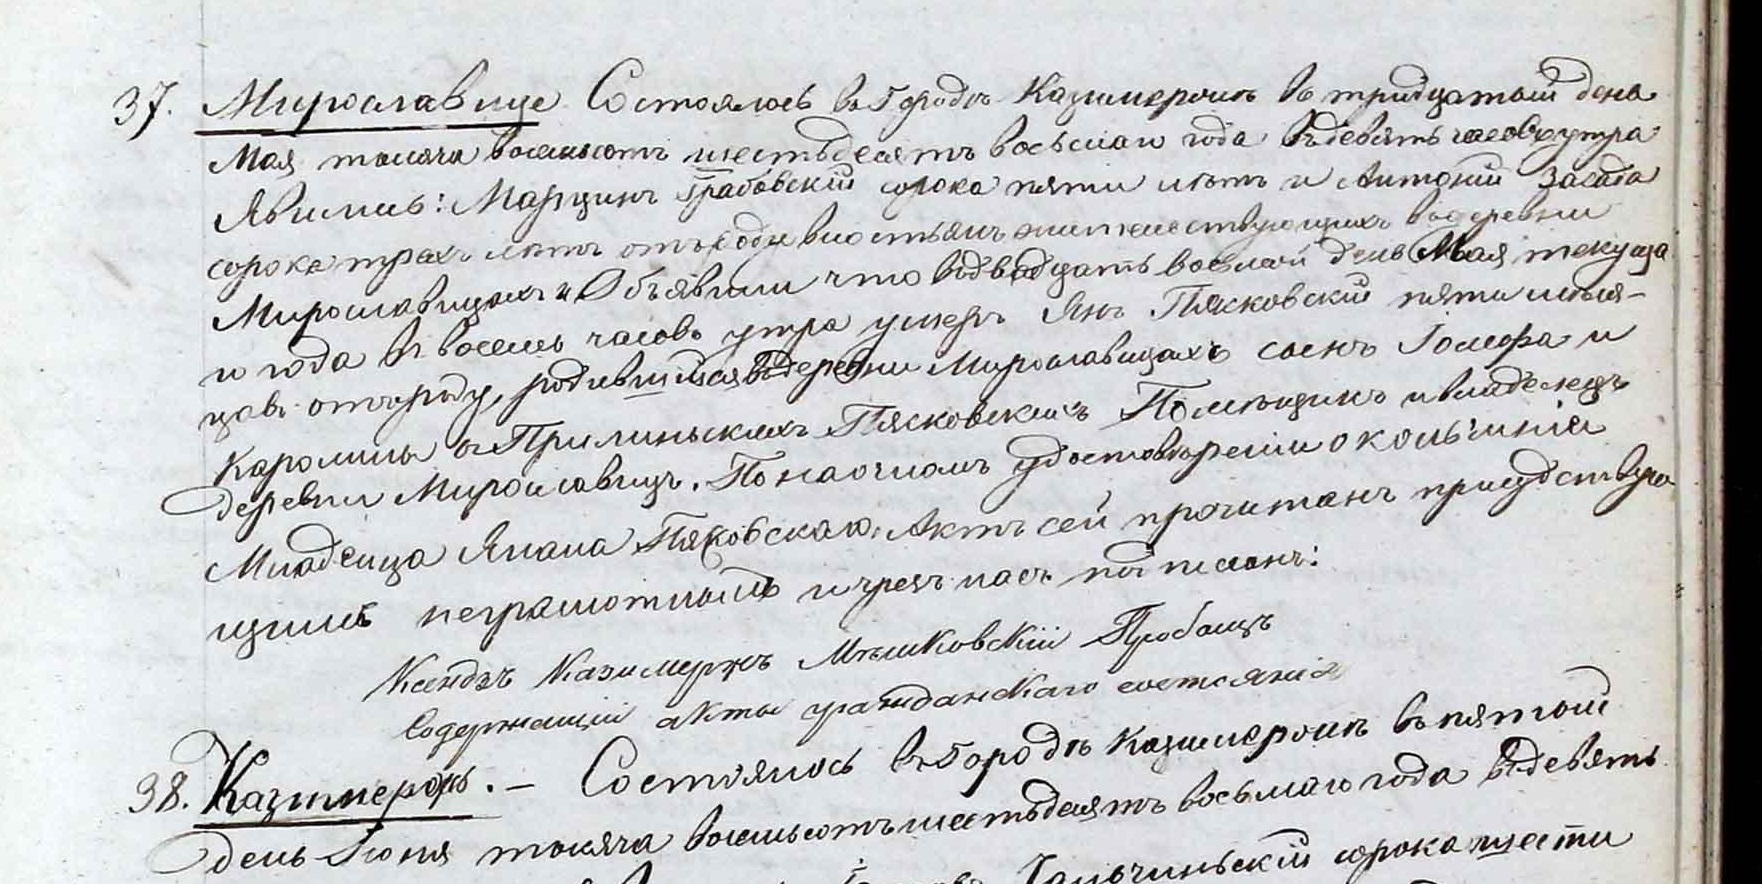 37. Мирославице Состоялось въ Городѣ Казимержѣ въ тридцатый день
Мая тысяча восемьсотъ шестьдесятъ восьмаго года въ девять часовъ утра
Явились: Марцинъ Грабовскій сорока пяти лѣтъ и Антоній Засада
сорока трехъ лѣтъ отъ роду жительствующихъ въ деревни
Мирославицахъ и Объявили что въ двадцать восьмой день Мая текуща
го года въ восемь часовъ утра умеръ Янъ Пясковскій пяти мѣся-
цовъ отъ роду, родившійся въ деревни Мирославицахъ сынъ Іосефа и
Каролины Пясковскихъ Помѣщикъ и владелецъ
деревни Мирославицъ. По наочномъ удостовѣреніи о кончинѣ
Младенца Яна Пясковскаго. Актъ сей прочитанъ присудствую
щимъ неграмотнымъ и чрезъ насъ подписанъ:
Ксендзъ Казимержъ Мышковскій Пробощъ
Содержащій акты гражданскаго состоянія
38. Казимержъ. — Состоялось въ Городѣ Казимержѣ въ пятый
день Іюня тысяча восемьсотъ шестьдесятъ восьмаго года въ девять
сорока шести